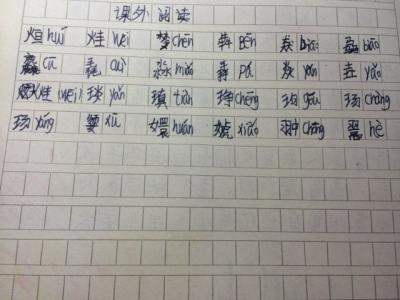 课外阅读
烜huǐ 烓wei 棽chēn 犇Bēn 猋biāo 骉biāo
麤cū 毳cuì 淼miǎo 掱pá 焱yàn 垚yáo
烓(wēi) 琰yǎn 瑱tiàn 琤chēng 玽gǒu 玚chàng
玚yáng 媭xū 嬛huán 婋xiāo 翀chōng 翯hè